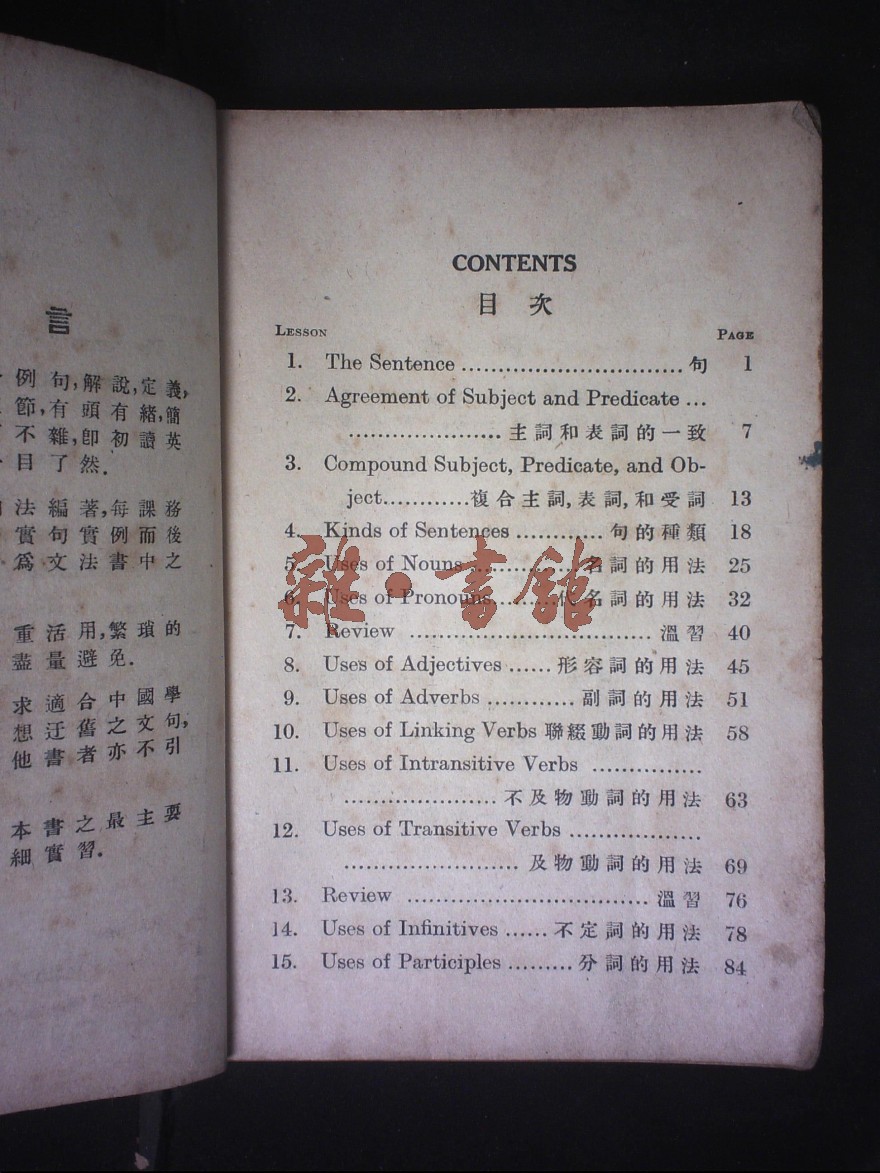 言
例句,解說,定義,
節,有頭有緒,簡
不雜,卽初讀英
目了然.
法編著,每課務
實句實例而後
爲文法書中之
重活用,繁瑣的
盡量避免.
求適合中國學
想迂舊之文句,
他書者亦不引
本書之最主要
細實習.
CONTENTS
目次
LESSON PAGE
1. The Sentence .............................. 句 1
2. Agreement of Subject and Predicate ...
..................... 主詞和表詞的一致 7
3. Compound Subject, Predicate, and Ob-
ject............複合主詞,表詞,和受詞 13
4. Kinds of Sentences ............ 句的種類 18
5. Uses of Nouns ............... 名詞的用法 25
6. Uses of Pronouns.........代名詞的用法 32
7. Review ................................. 溫習 40
8. Uses of Adjectives ...... 形容詞的用法 45
9. Uses of Adverbs ............ 副詞的用法 51
10. Uses of Linking Verbs 聯綴動詞的用法 58
11. Uses of Intransitive Verbs ...............
..................... 不及物動詞的用法 63
12. Uses of Transitive Verbs ..................
........................ 及物動詞的用法 69
13. Review ................................. 溫習 76
14. Uses of Infinitives ...... 不定詞的用法 78
15. Uses of Participles ......... 分詞的用法 84
雜·書館